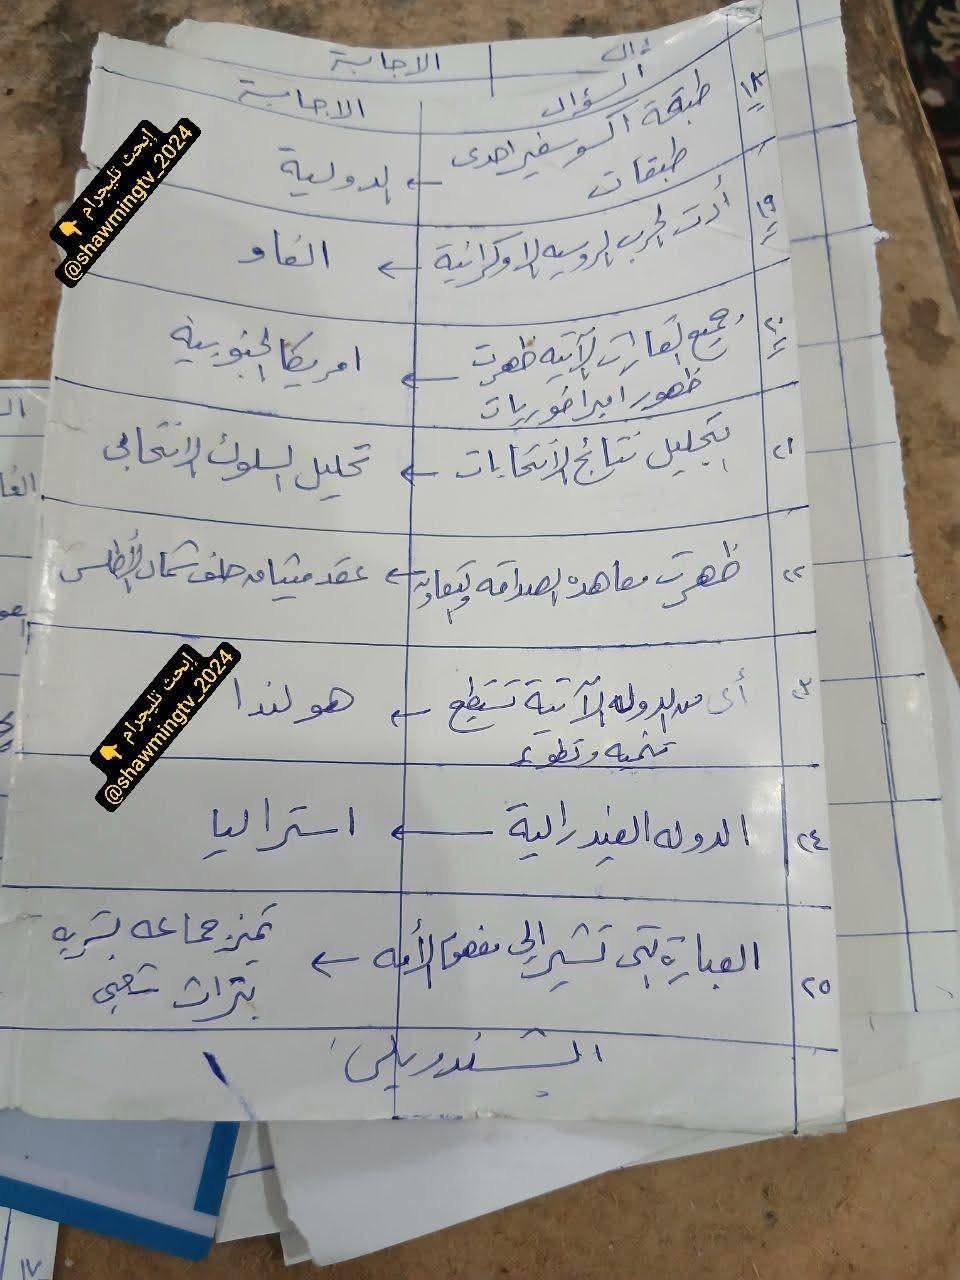 الاجابة
السؤال
الاجابة
١٨
طبقة اكسوسفير احدى
طبقات
← الدولية
١٩
أدت الحرب الروسيه الاوكرانية
← الفاو
٢٠
جميع القارات الآتيه ظهرت
ظهور امبراطوريات
← امريكا الجنوبية
٢١
بتحليل نتائج الأنتخابات
← تحليل السلوك الانتخابى
٢٢
ظهرت معاهده الصداقه والتعاون
← عقد ميثاق حلف شمال الأطلسى
أى من الدوله الآتية تستطيع
تنميه وتطوير
← هولندا
٢٤
الدوله الفيدرالية
← استراليا
٢٥
العبارة التى تشير الى مفهوم الأمه
← تميز جماعه بشريه
بتراث شعبى
إبحث تليجرام 👇
@shawmingtv_2024
إبحث تليجرام 👇
@shawmingtv_2024